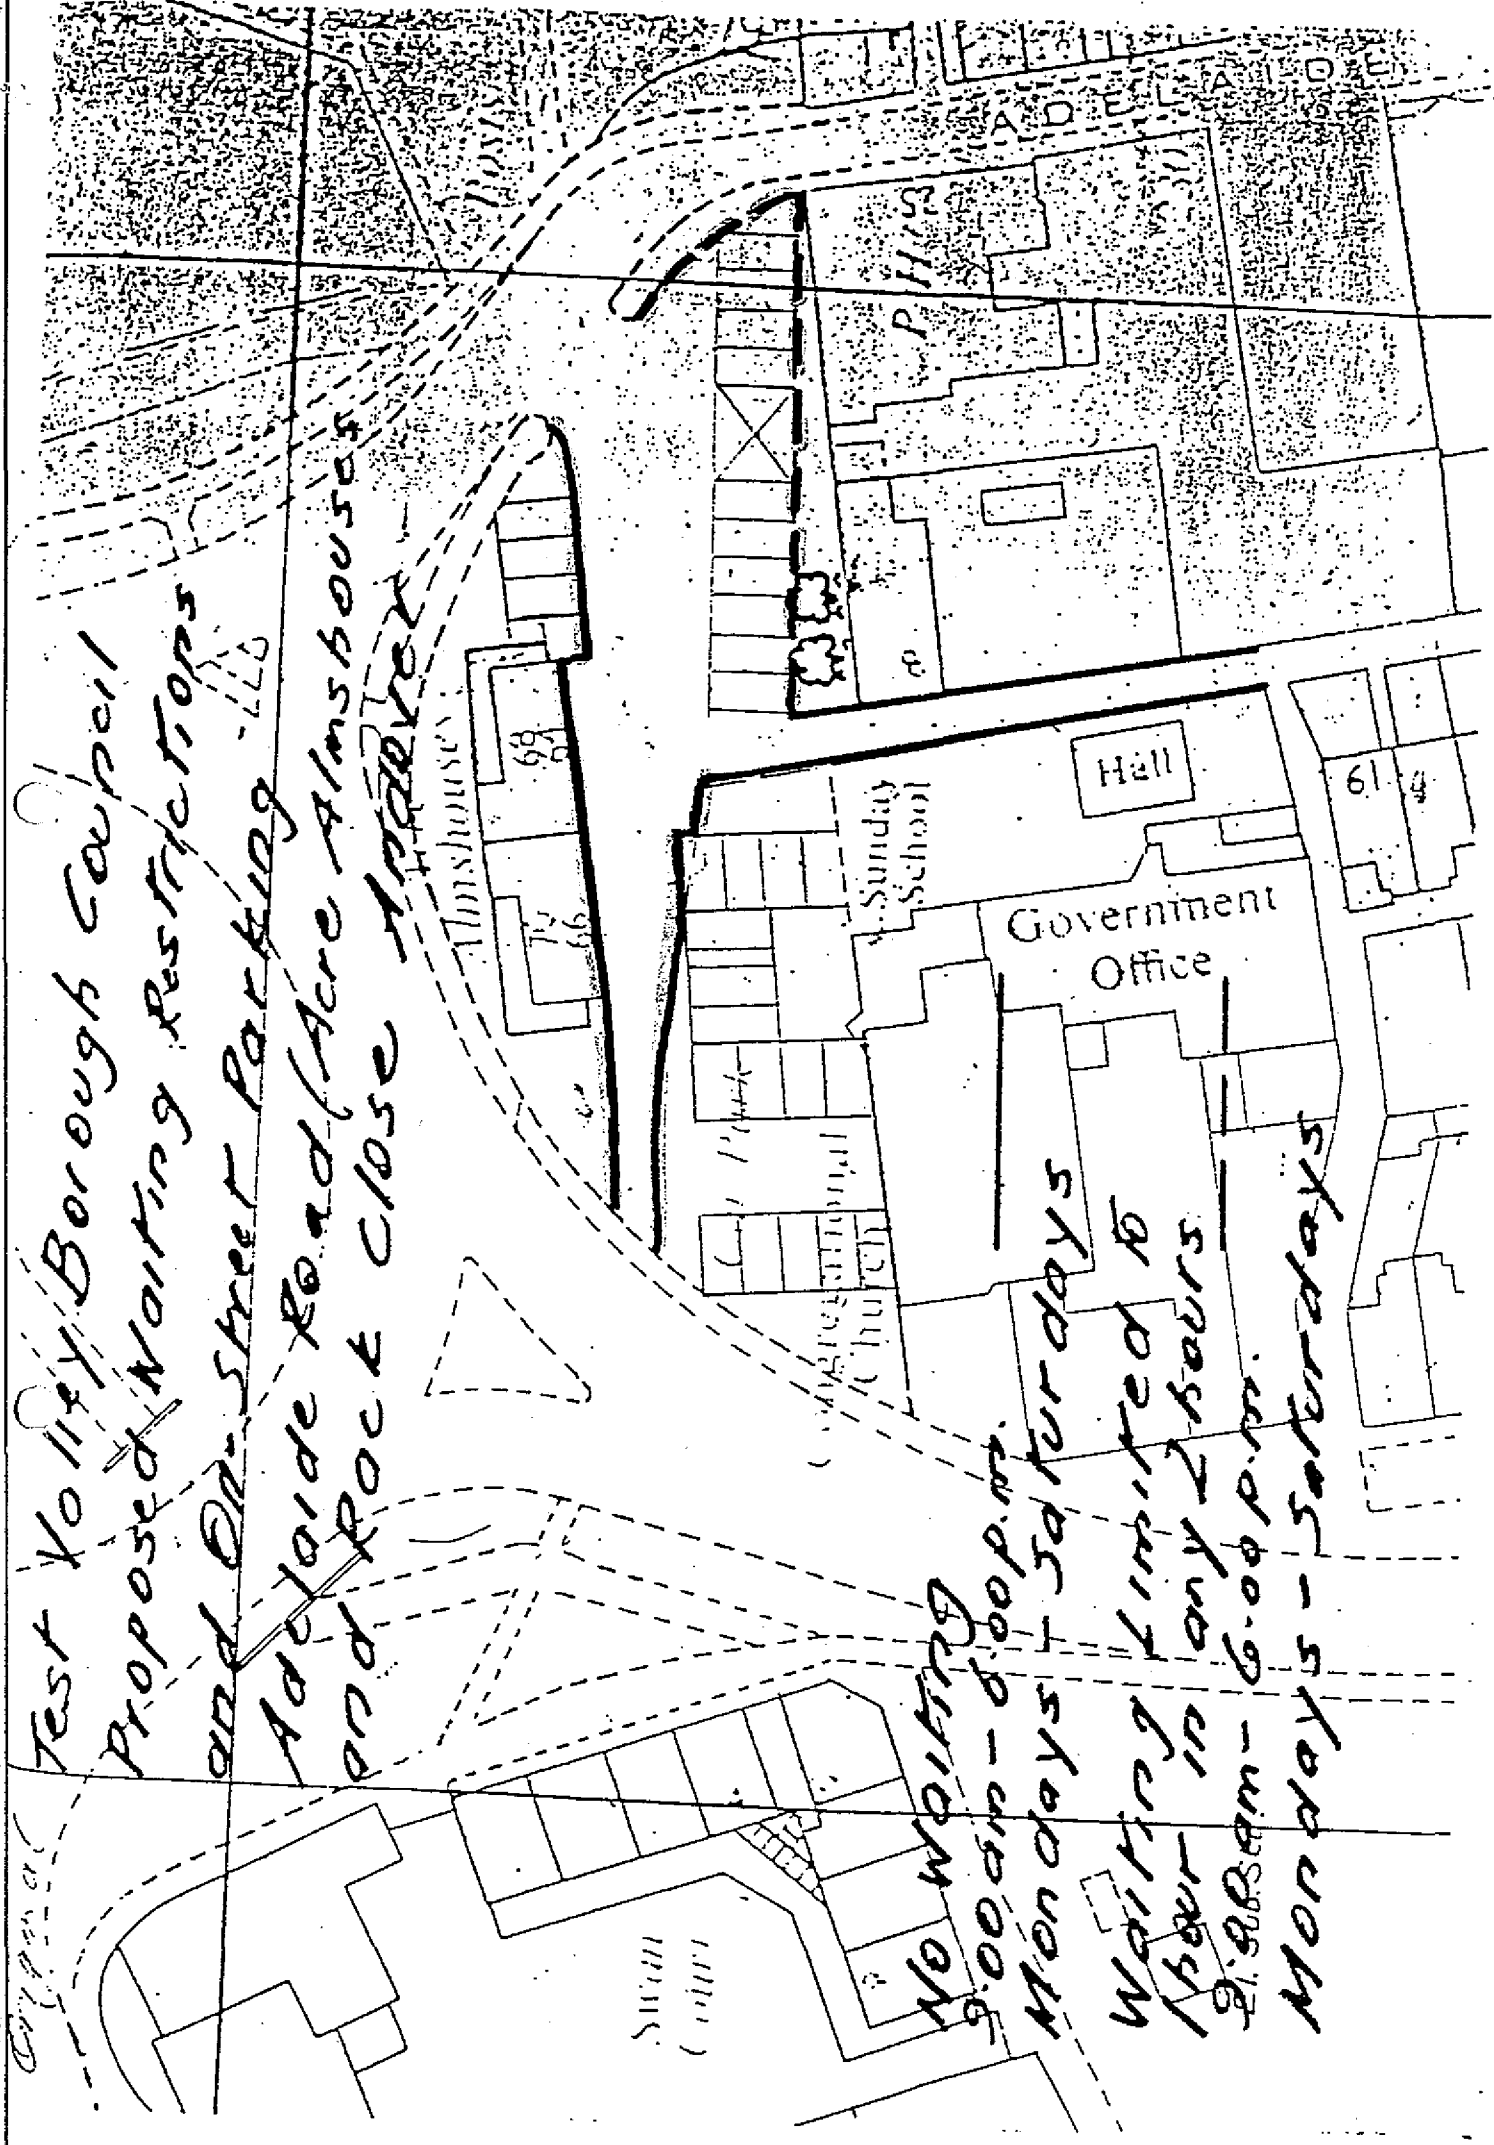 Test Valley Borough Council
Proposed Waiting Restrictions
and On-Street Parking
Adelaide Road (Acre Almshouses
and Rack Close Andover
No Waiting
9.00am - 6.00p.m.
Mondays - Saturdays
Waiting Limited to
1 hour in any 2 hours
9.00am - 6.00p.m.
Mondays - Saturdays
Almshouses
Sunday
School
Hall
Government
Office
Car Park
Congregational
Church
Swan
Court
El Sub Sta
P H's
ADELAIDE
68
66
61
8